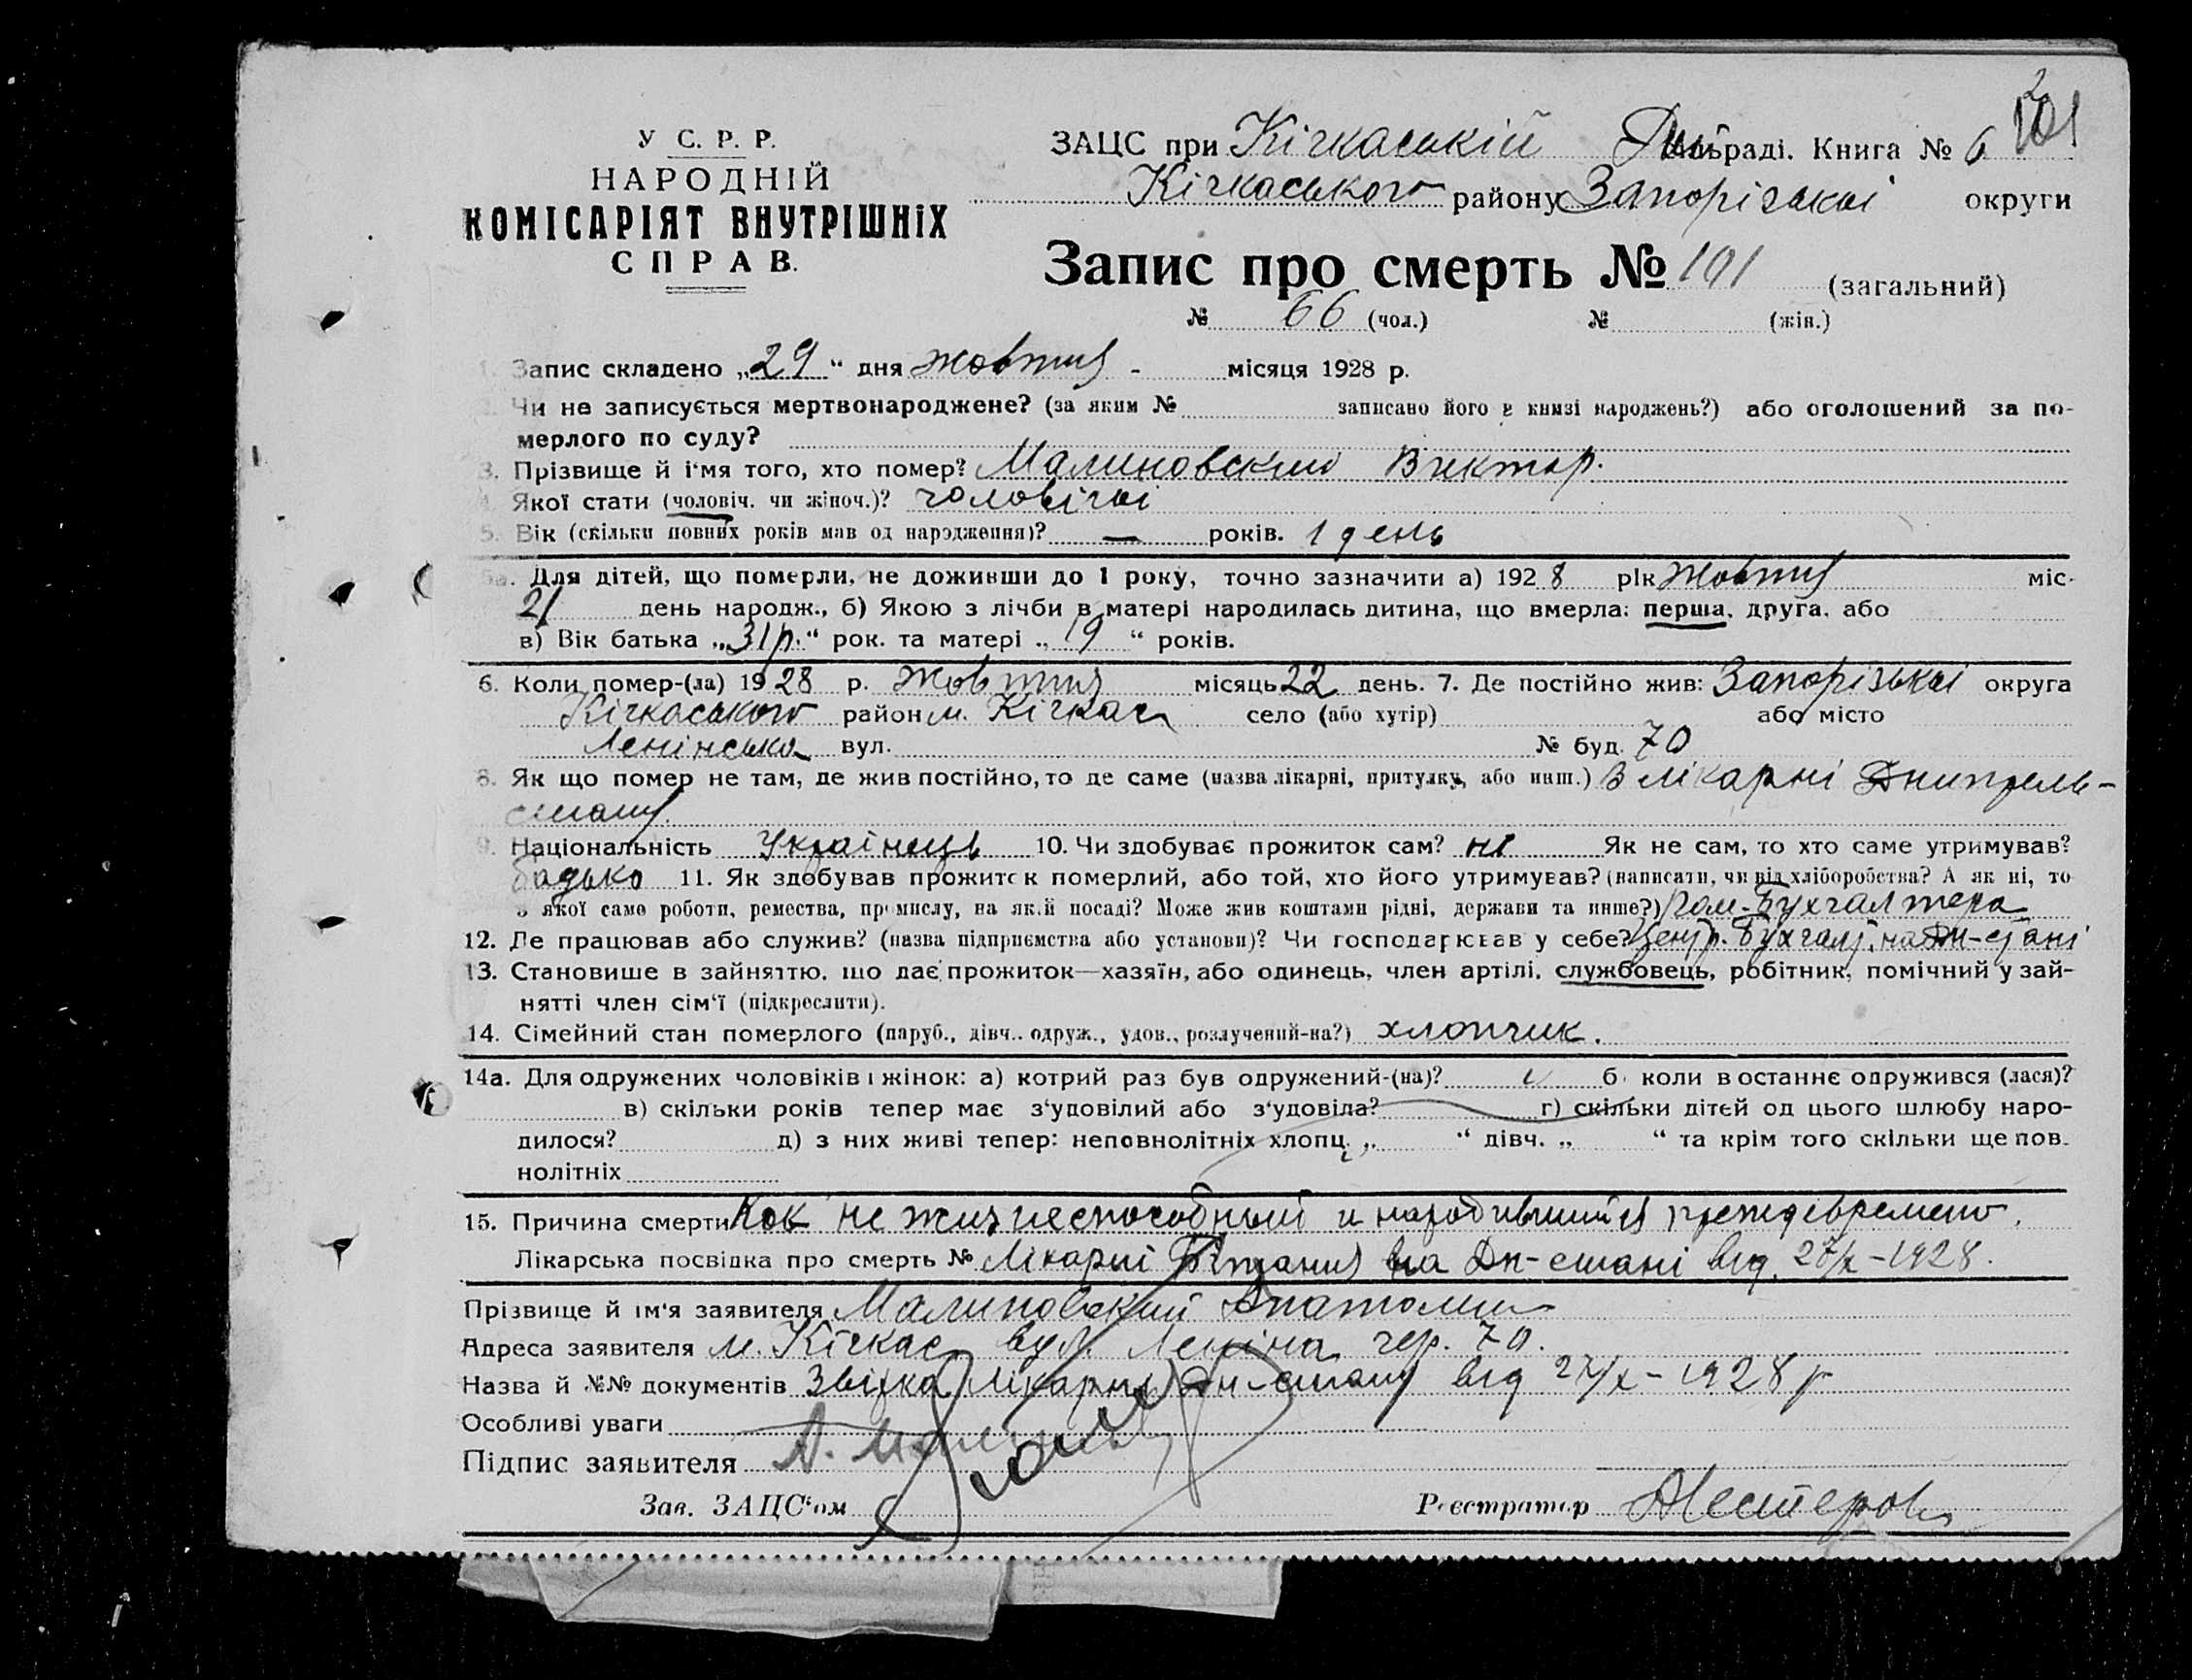 2
101
У С. Р. Р.
НАРОДНІЙ
КОМІСАРІЯТ ВНУТРІШНІХ
СПРАВ.
ЗАЦС при Кічкаській раді. Книга № 6
Кічкаського району Запорізької округи
Запис про смерть № 101 (загальний)
№ 66 (чол.) № (жін.)
1. Запис складено „29“ дня жовтня - місяця 1928 р.
2. Чи не записується мертвонароджене? (за яким № записано його в книзі народжень?) або оголошений за по-
мерлого по суду?
3. Прізвище й ім'я того, хто помер? Малиновский Виктор.
4. Якої стати (чоловіч. чи жіноч.)? чоловічої
5. Вік (скільки повних років мав од народження)? — років. 1 день
5а. Для дітей, що померли, не доживши до 1 року, точно зазначити а) 1928 рік жовтня міс.
21 день народж., б) Якою з лічби в матері народилась дитина, що вмерла: перша, друга, або
в) Вік батька „31р.“ рок. та матері „19“ років.
6. Коли помер-(ла) 1928 р. жовтня місяць 22 день. 7. Де постійно жив: Запорізької округа
Кічкаського район м. Кічкас село (або хутір) або місто
Ленінська вул. № буд. 70
8. Як що помер не там, де жив постійно, то де саме (назва лікарні, притулку, або инш.) В лікарні Днипрель-
стану.
9. Національність Українець 10. Чи здобуває прожиток сам? ні Як не сам, то хто саме утримував?
батько 11. Як здобував прожиток померлий, або той, хто його утримував? (написати, чи від хліборобства? А як ні, то
з якої саме роботи, ремества, промислу, на якій посаді? Може жив коштами рідні, держави та инше?) Пом. Бухгалтера
12. Де працював або служив? (назва підприємства або установи)? Чи господарював у себе? Центр. Бухгалт. на Дн-стані
13. Становише в зайняттю, що дає прожиток—хазяїн, або одинець, член артілі, службовець, робітник, помічний у зай-
нятті член сім'ї (підкреслити).
14. Сімейний стан померлого (паруб., дівч., одруж., удов., розлучений-на?) хлопчик.
14а. Для одружених чоловіків і жінок: а) котрий раз був одружений-(на)? б) коли востаннє одружився (лася)?
в) скільки років тепер має з'удовілий або з'удовіла? г) скільки дітей од цього шлюбу наро-
дилося? д) з них живі тепер: неповнолітніх хлопц. „ “ дівч. „ “ та крім того скільки ще пов-
нолітніх
15. Причина смерти Как не жизнеспособный и народившийся преждевремено.
Лікарська посвідка про смерть № Лікарні на Дн-стані від 27/X-1928.
Прізвище й ім'я заявителя Малиновский Анатолий
Адреса заявителя м. Кічкас вул. Леніна чер. 70.
Назва й №№ документів Звістка Лікарні Дн-стану від 27/X-1928 р
Особливі уваги
Підпис заявителя А. Малинов
Зав. ЗАЦС'ом Реєстратор Нестерова